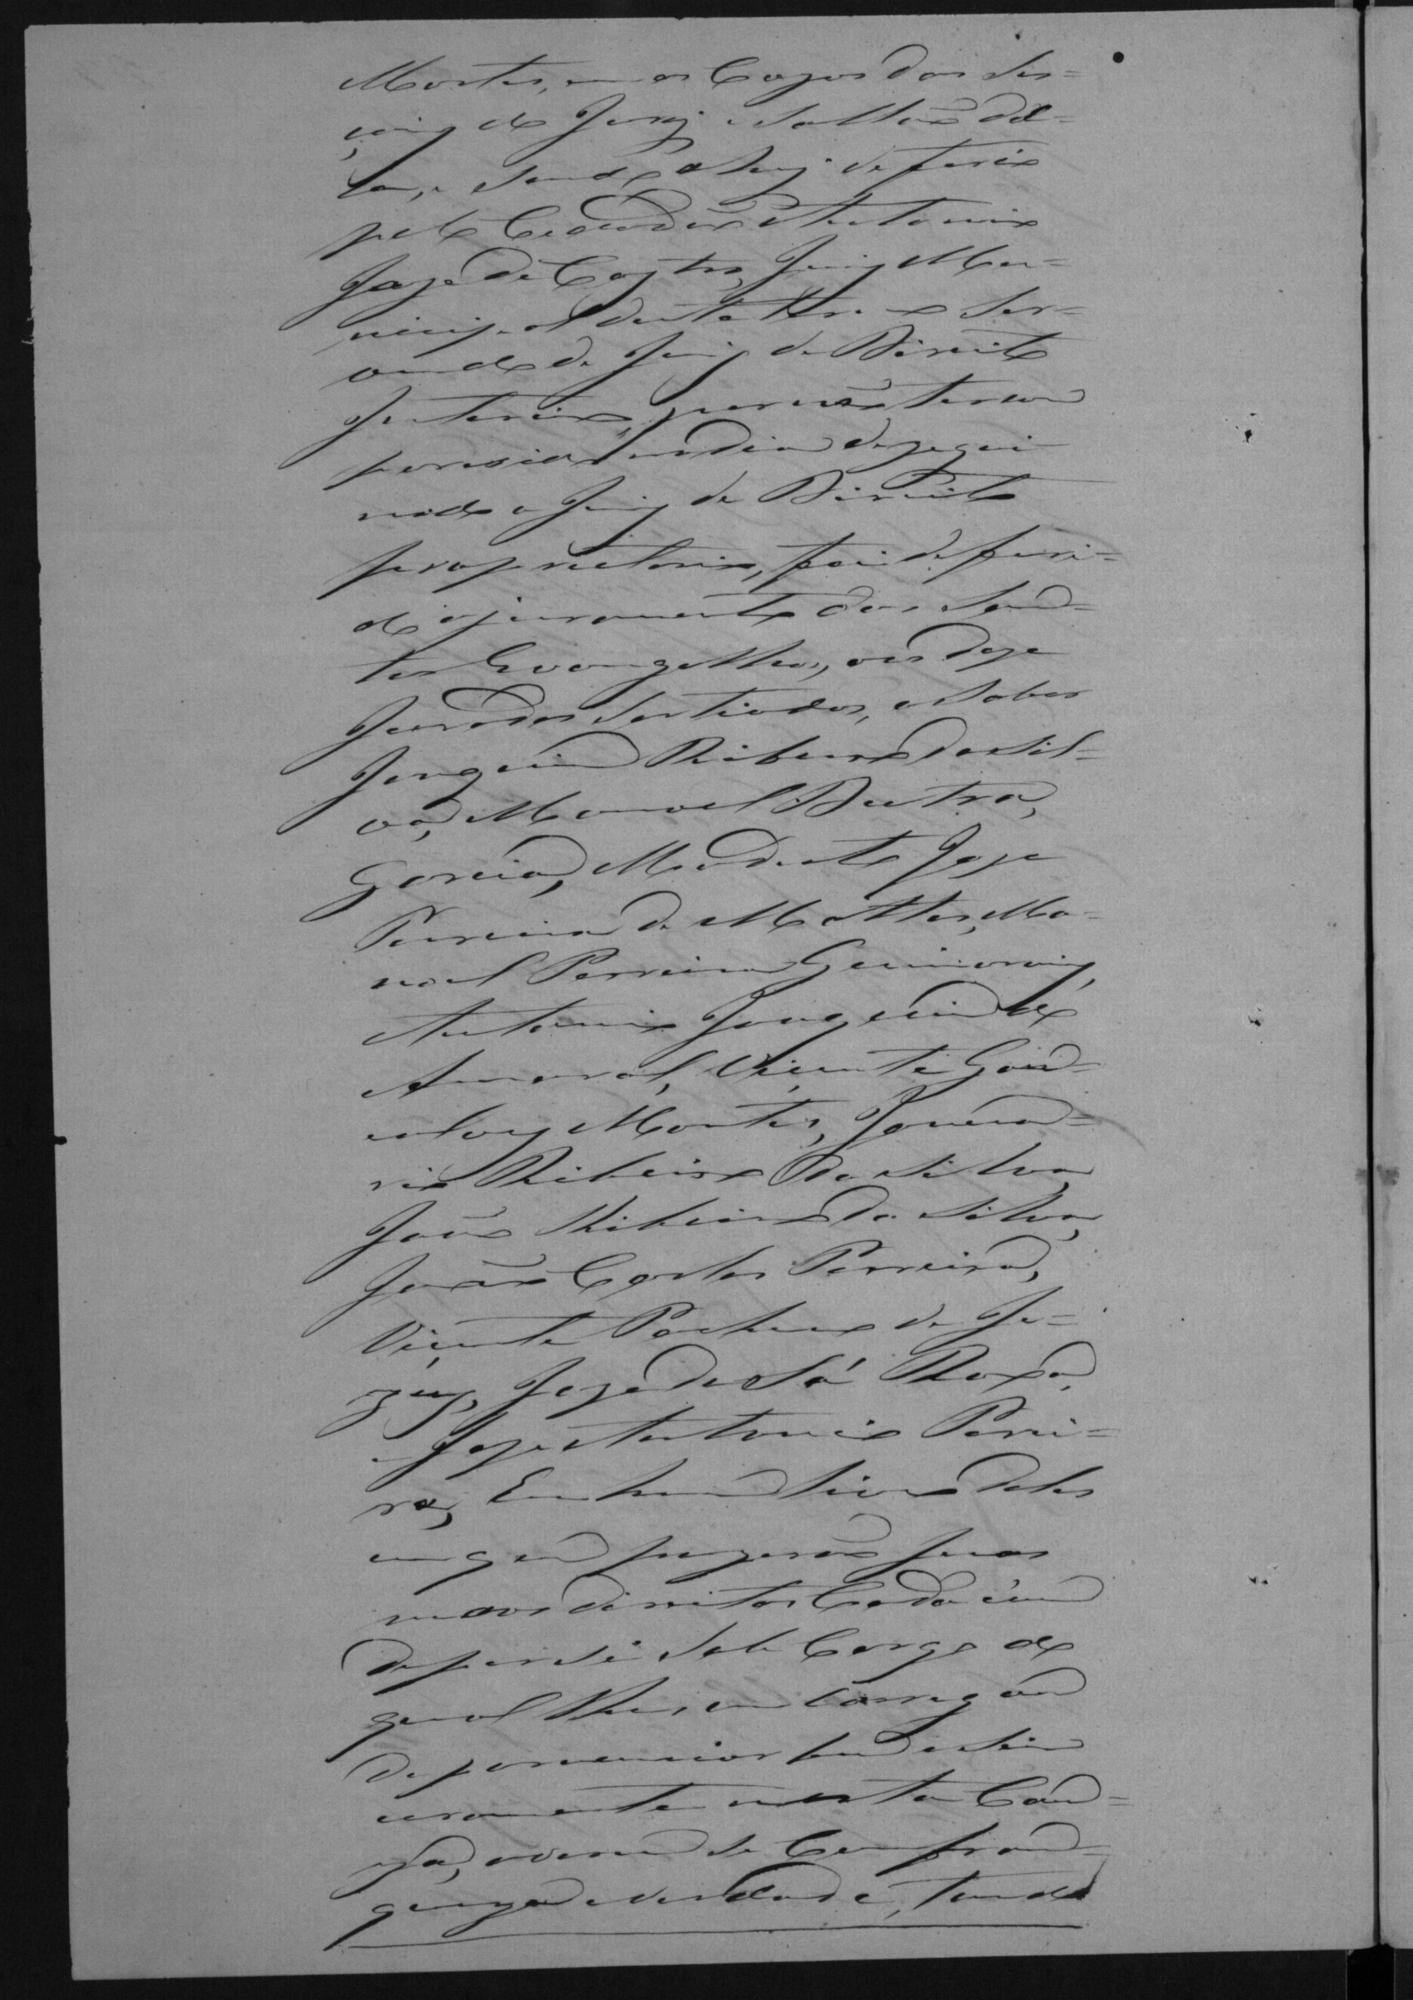 Montes, e nas Cazas das Ses=
coins do Jury e Sallas del=
las, e sendo ahy deferio
pelo Cidadão Antonio
Joze de Castro, Juiz Mu=
nicipal desta Villa e Ser=
vindo de Juiz de Direito
Interino, por não ter com
parecido no dia dezigui
nado o Juiz de Direito
proprietario, foi deferi=
do o juramento dos San=
tos Evangelhos, aos doze
Jurados Sortiados, a Saber
Joaquim Ribeiro da Sil=
va, Manoel Dutra,
Garcia, Modesto Joze
Pereira de Mattos, Ma=
noel Perreira Guimaraiz
Antonio Joaquim do
Amaral, Vicente Gon=
calvez Montes, Janua=
rio Ribeiro da Silva
João Ribeiro da Silva,
João Carlos Perreira,
Vicente Pacheco de Je=
zuz, Joze de Sá Roxa,
e Joze Antonio Perei=
ra, Em hum Livro delles
em que puzerão suas
maons direitas Cada um
de per si Sob Cargo do
qual lhes encarregou
de pronunciar bem e Sin
ceramente nesta Cau=
za, averem se Com fran=
queza e verdade, tendo